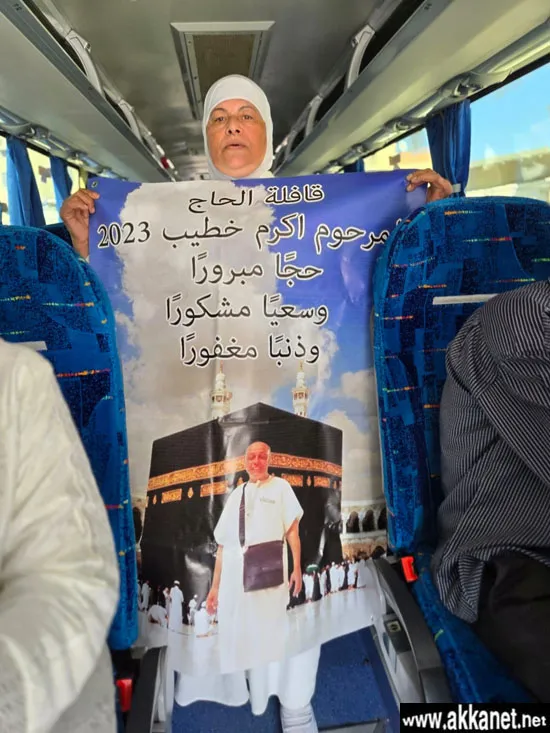 قافلة الحاج
المرحوم اكرم خطيب 2023
حجًا مبرورًا
وسعيًا مشكورًا
وذنبًا مغفورًا
www.akkanet.net